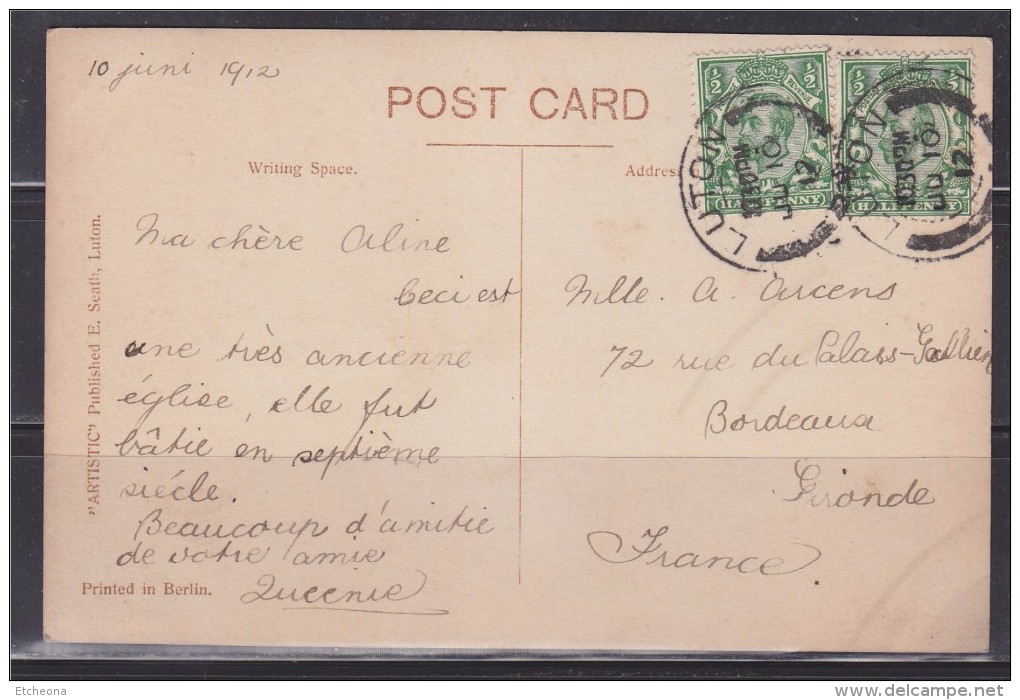 10 juni 1912
POST CARD
Writing Space.
Address
"ARTISTIC" Published E. Seath, Luton.
Ma chère Aline
Ceci est
une très ancienne
église, elle fut
bâtie en septième
siécle.
Beaucoup d'amitie
de votre amie
Queenie
Printed in Berlin.
Mlle. A. Arcens
72 rue du Palais-Gallien
Bordeaux
Gironde
France.
1/2 1/2
HALFPENNY
LUTON
JU 10
12
1/2 1/2
HALFPENNY
LUTON
JU 10
12
Etcheona
www.delcampe.net